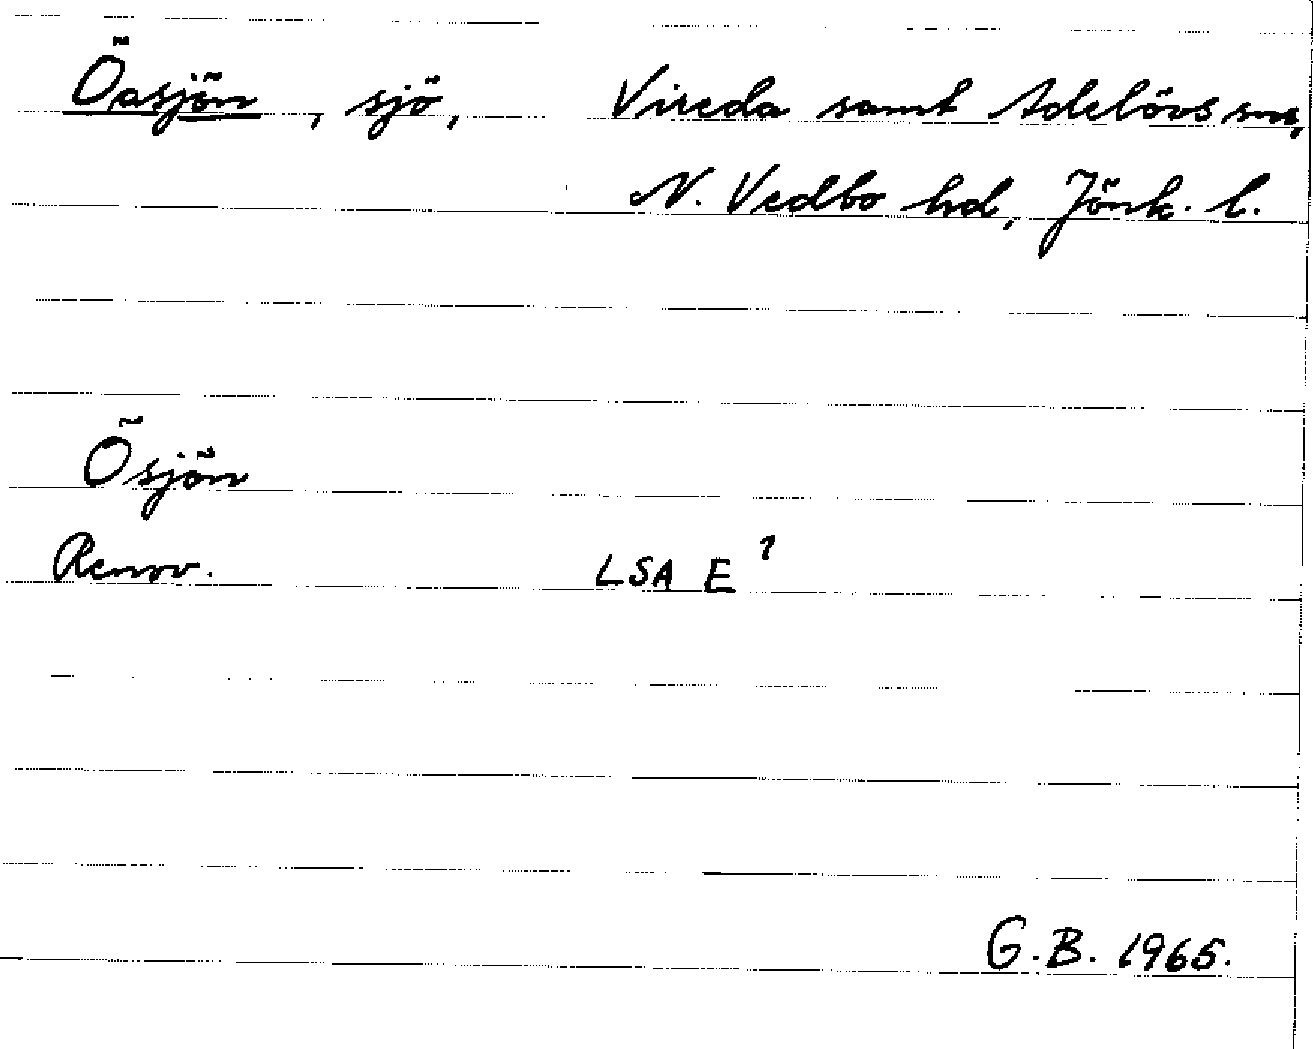 Öasjön, sjö, Vireda samt Adelövs snr,
N. Vedbo hd, Jönk. l.
Ösjön
Renov. LSA E 1
G.B. 1965.